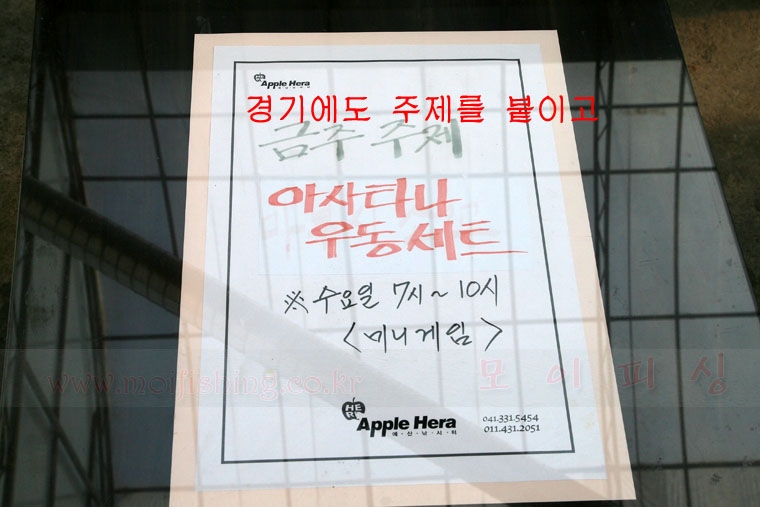 Apple Hera
경기에도 주제를 붙이고
금주 주제
아사타나
우동세트
※ 수요일 7시~10시
<미니게임>
www.moifishing.co.kr 모이피싱
Apple Hera
예·산·낚·시·터
041.331.5454
011.431.2051